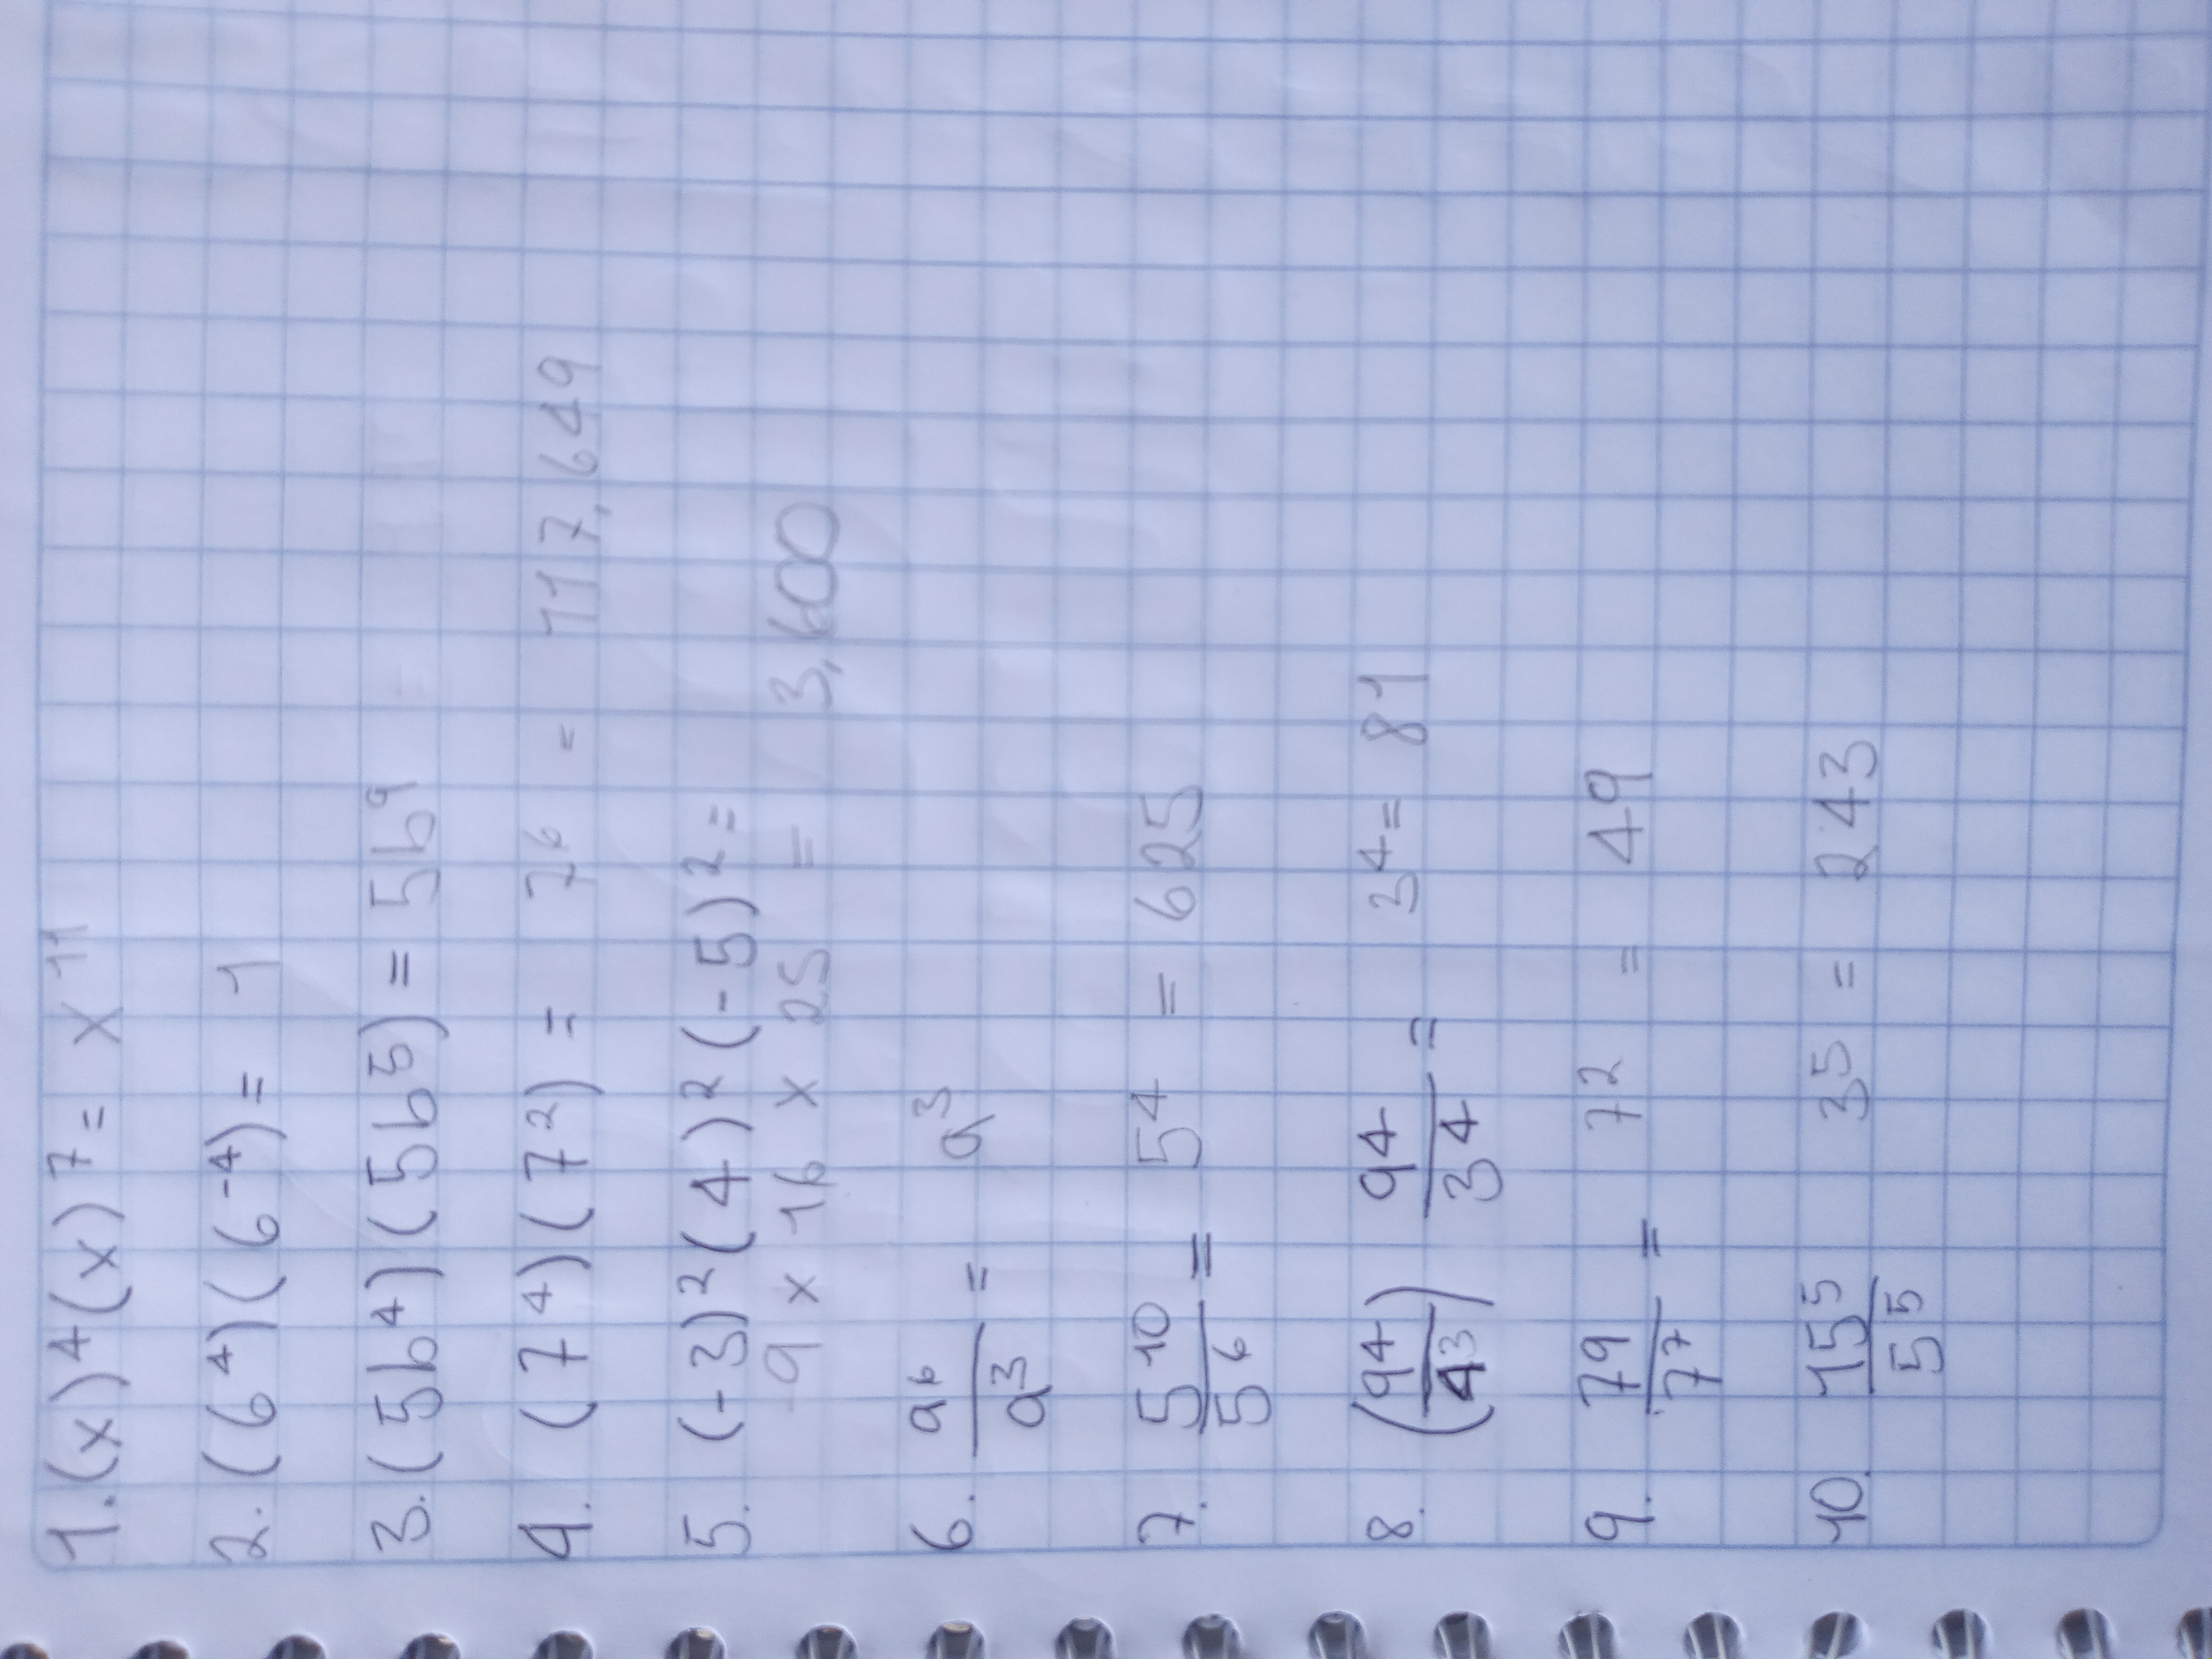 1. (x)⁴(x)⁷= x¹¹
2. (6⁴)(6⁻⁴)= 1
3. (5b⁴)(5b⁵)= 5b⁹
4. (7⁴)(7²)= 7⁶ = 117,649
5. (-3)²(4)²(-5)²=
9 x 16 x 25 = 3,600
6. a⁶/a³ = a³
7. 5¹⁰/5⁶ = 5⁴ = 625
8. (9⁴/4³) 9⁴/3⁴ = 3⁴= 81
9. 7⁹/7⁷ = 7² = 49
10. 15⁵/5⁵ 3⁵ = 243